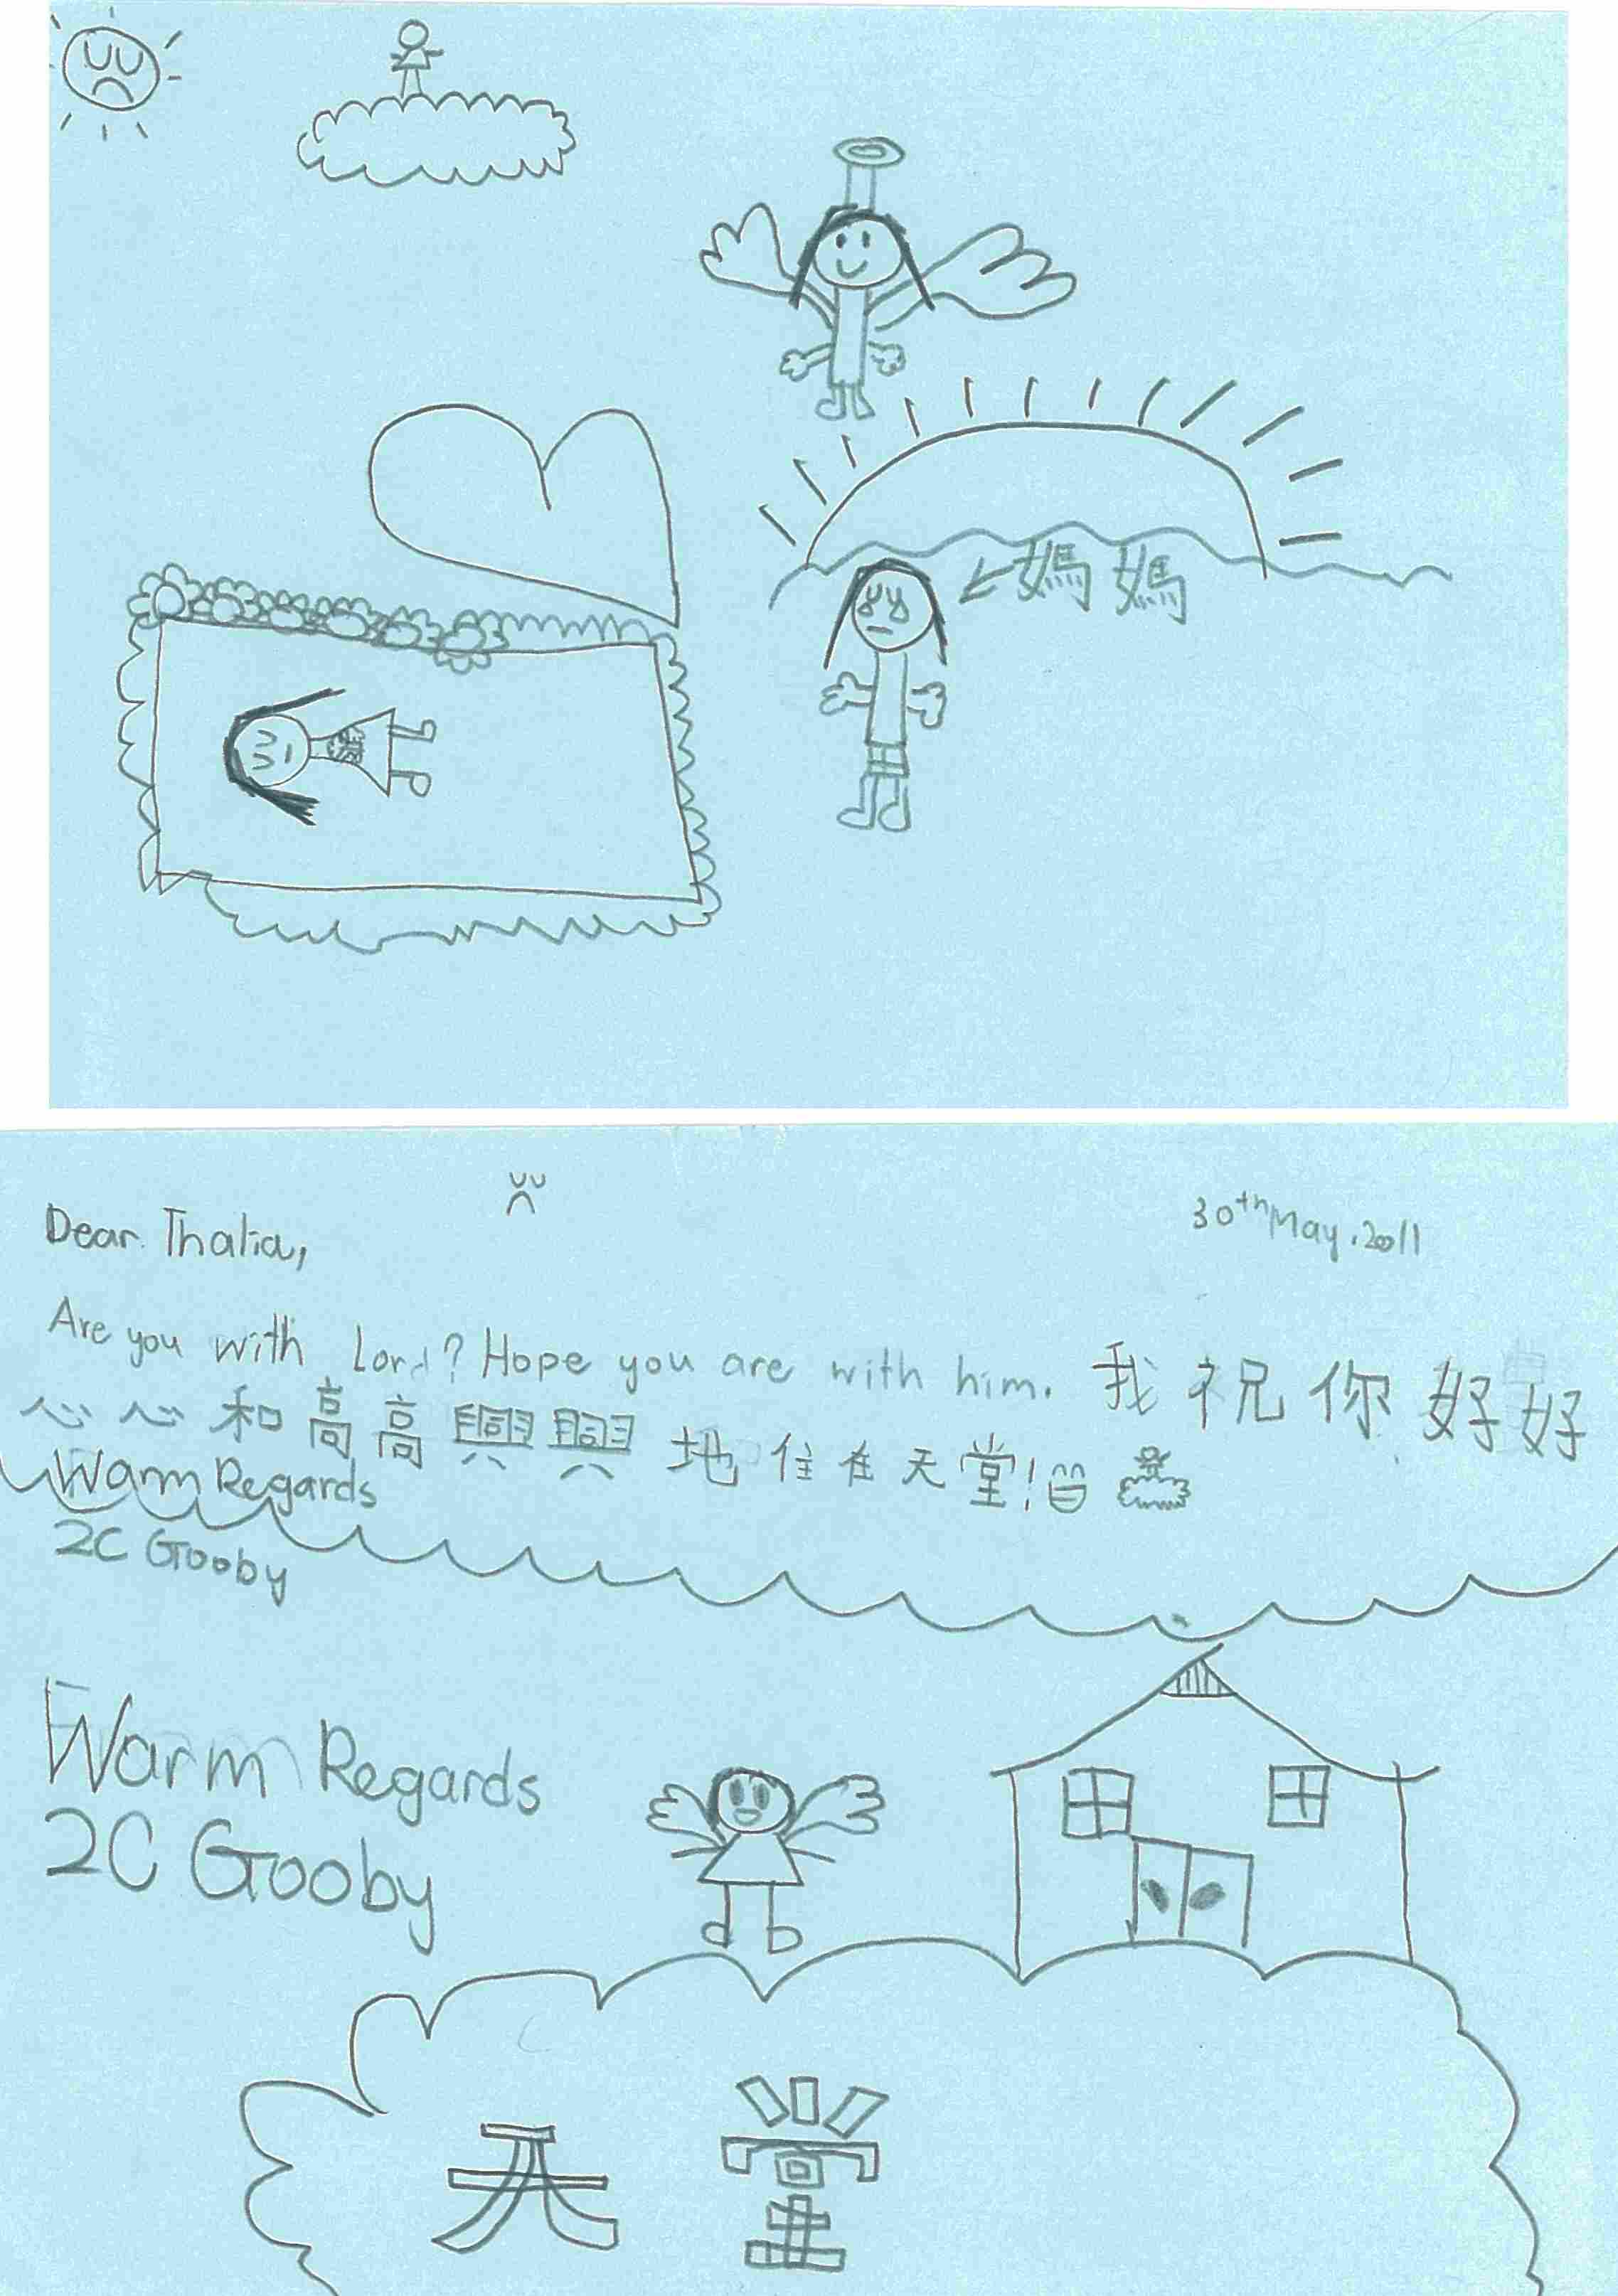 媽媽
Dear Thalia,
30th May. 2011
Are you with Lord? Hope you are with him. 我祝你好好
心心和高高興興地住在天堂!
Warm Regards
2C Gooby
Warm Regards
2C Gooby
天堂